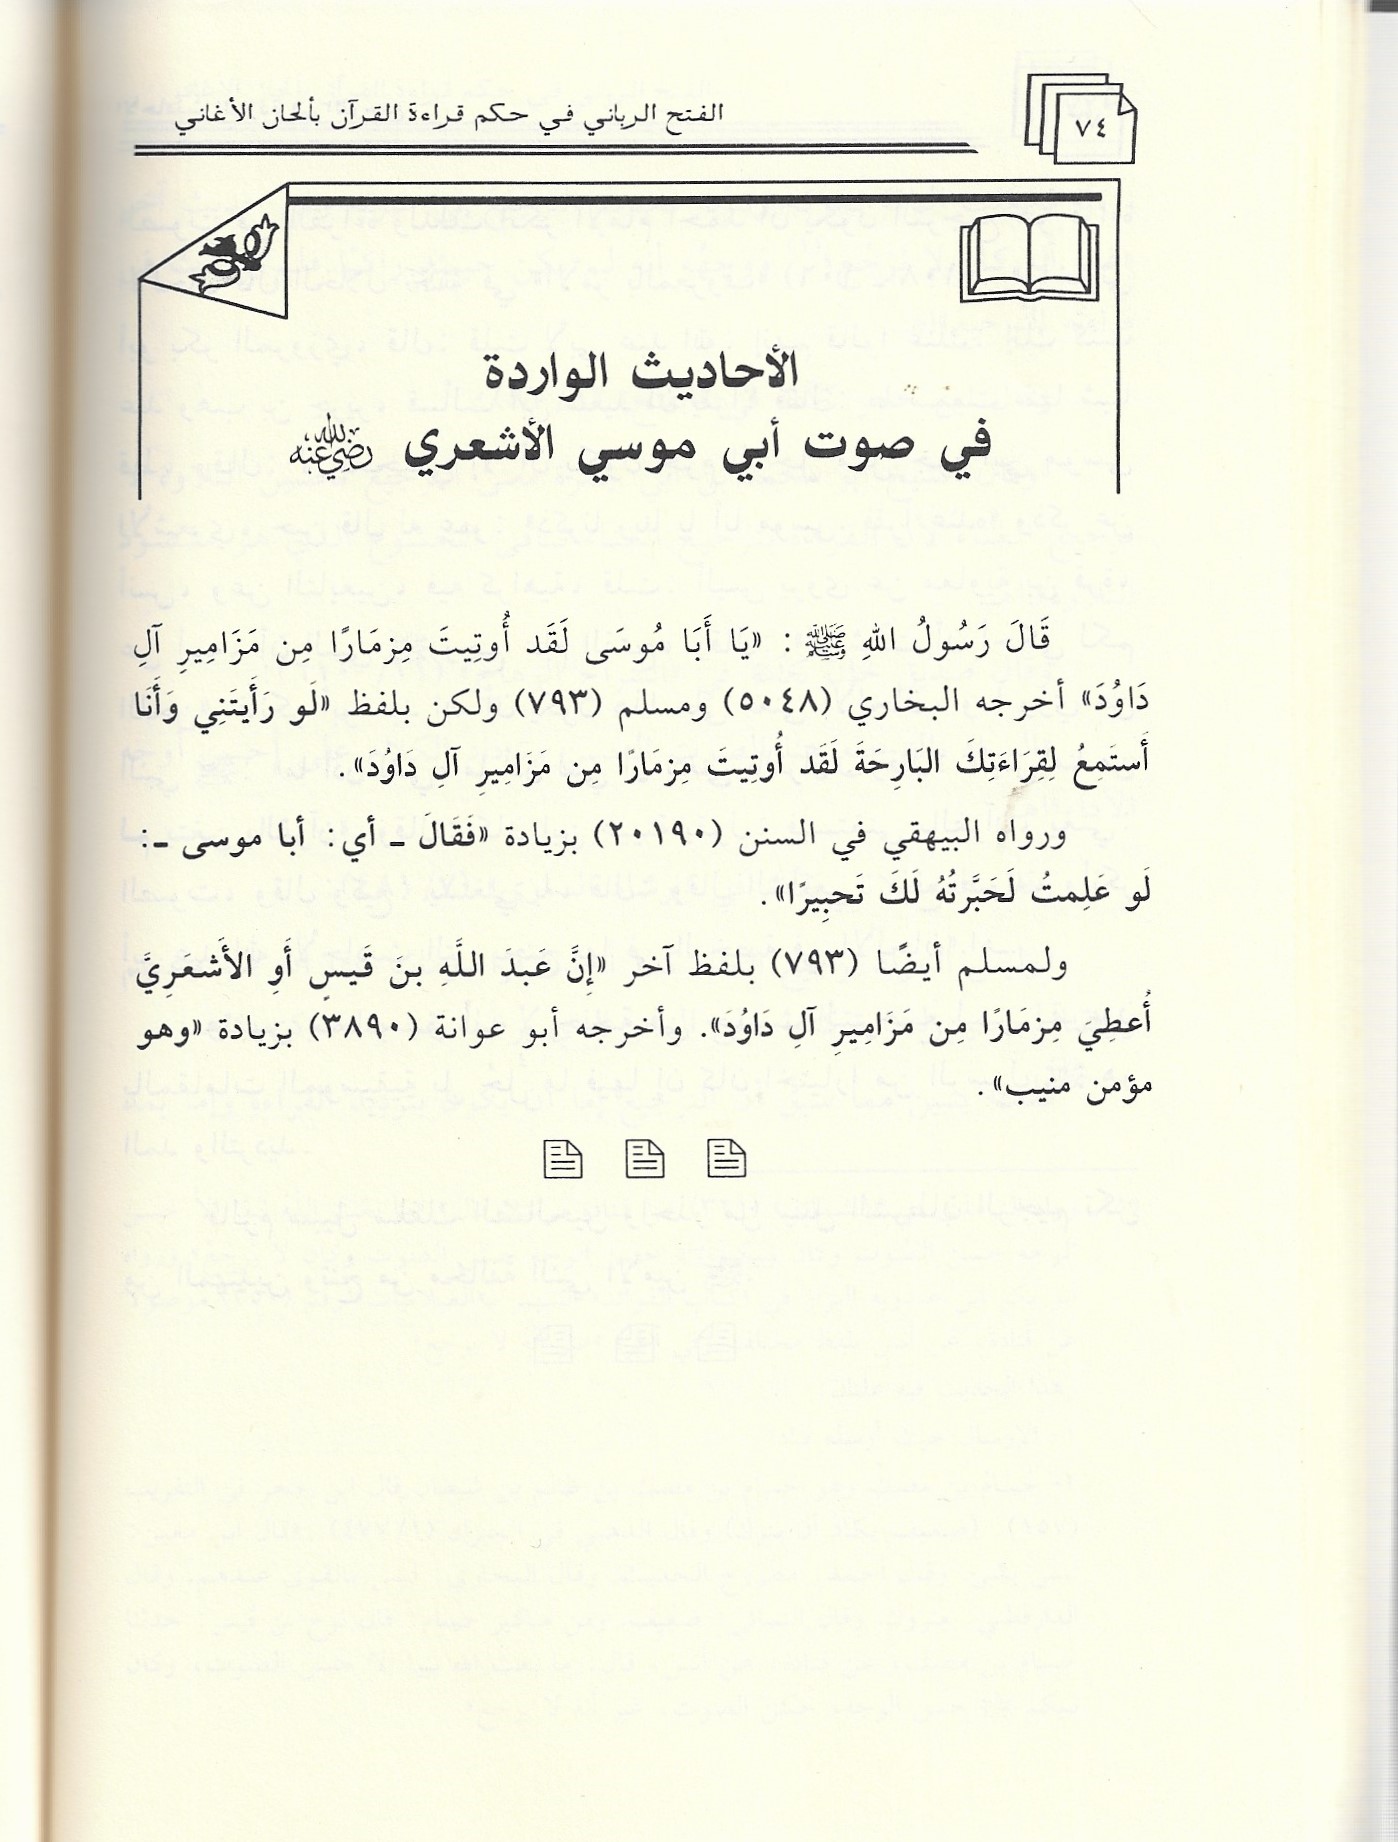 ٧٤
الفتح الرباني في حكم قراءة القرآن بألحان الأغاني
الأحاديث الواردة
في صوت أبي موسي الأشعري رضي الله عنه
قَالَ رَسُولُ اللهِ ﷺ : «يَا أَبَا مُوسَى لَقَد أُوتِيتَ مِزمَارًا مِن مَزَامِيرِ آلِ
دَاوُدَ» أخرجه البخاري (٥٠٤٨) ومسلم (٧٩٣) ولكن بلفظ «لَو رَأَيتَنِي وَأَنَا
أَستَمِعُ لِقِرَاءَتِكَ البَارِحَةَ لَقَد أُوتِيتَ مِزمَارًا مِن مَزَامِيرِ آلِ دَاوُدَ».
ورواه البيهقي في السنن (٢٠١٩٠) بزيادة «فَقَالَ ـ أي: أبا موسى ـ:
لَو عَلِمتُ لَحَبَّرتُهُ لَكَ تَحبِيرًا».
ولمسلم أيضًا (٧٩٣) بلفظ آخر «إِنَّ عَبدَ اللَّهِ بنَ قَيسٍ أَوِ الأَشعَرِيَّ
أُعطِيَ مِزمَارًا مِن مَزَامِيرِ آلِ دَاوُدَ». وأخرجه أبو عوانة (٣٨٩٠) بزيادة «وهو
مؤمن منيب» .